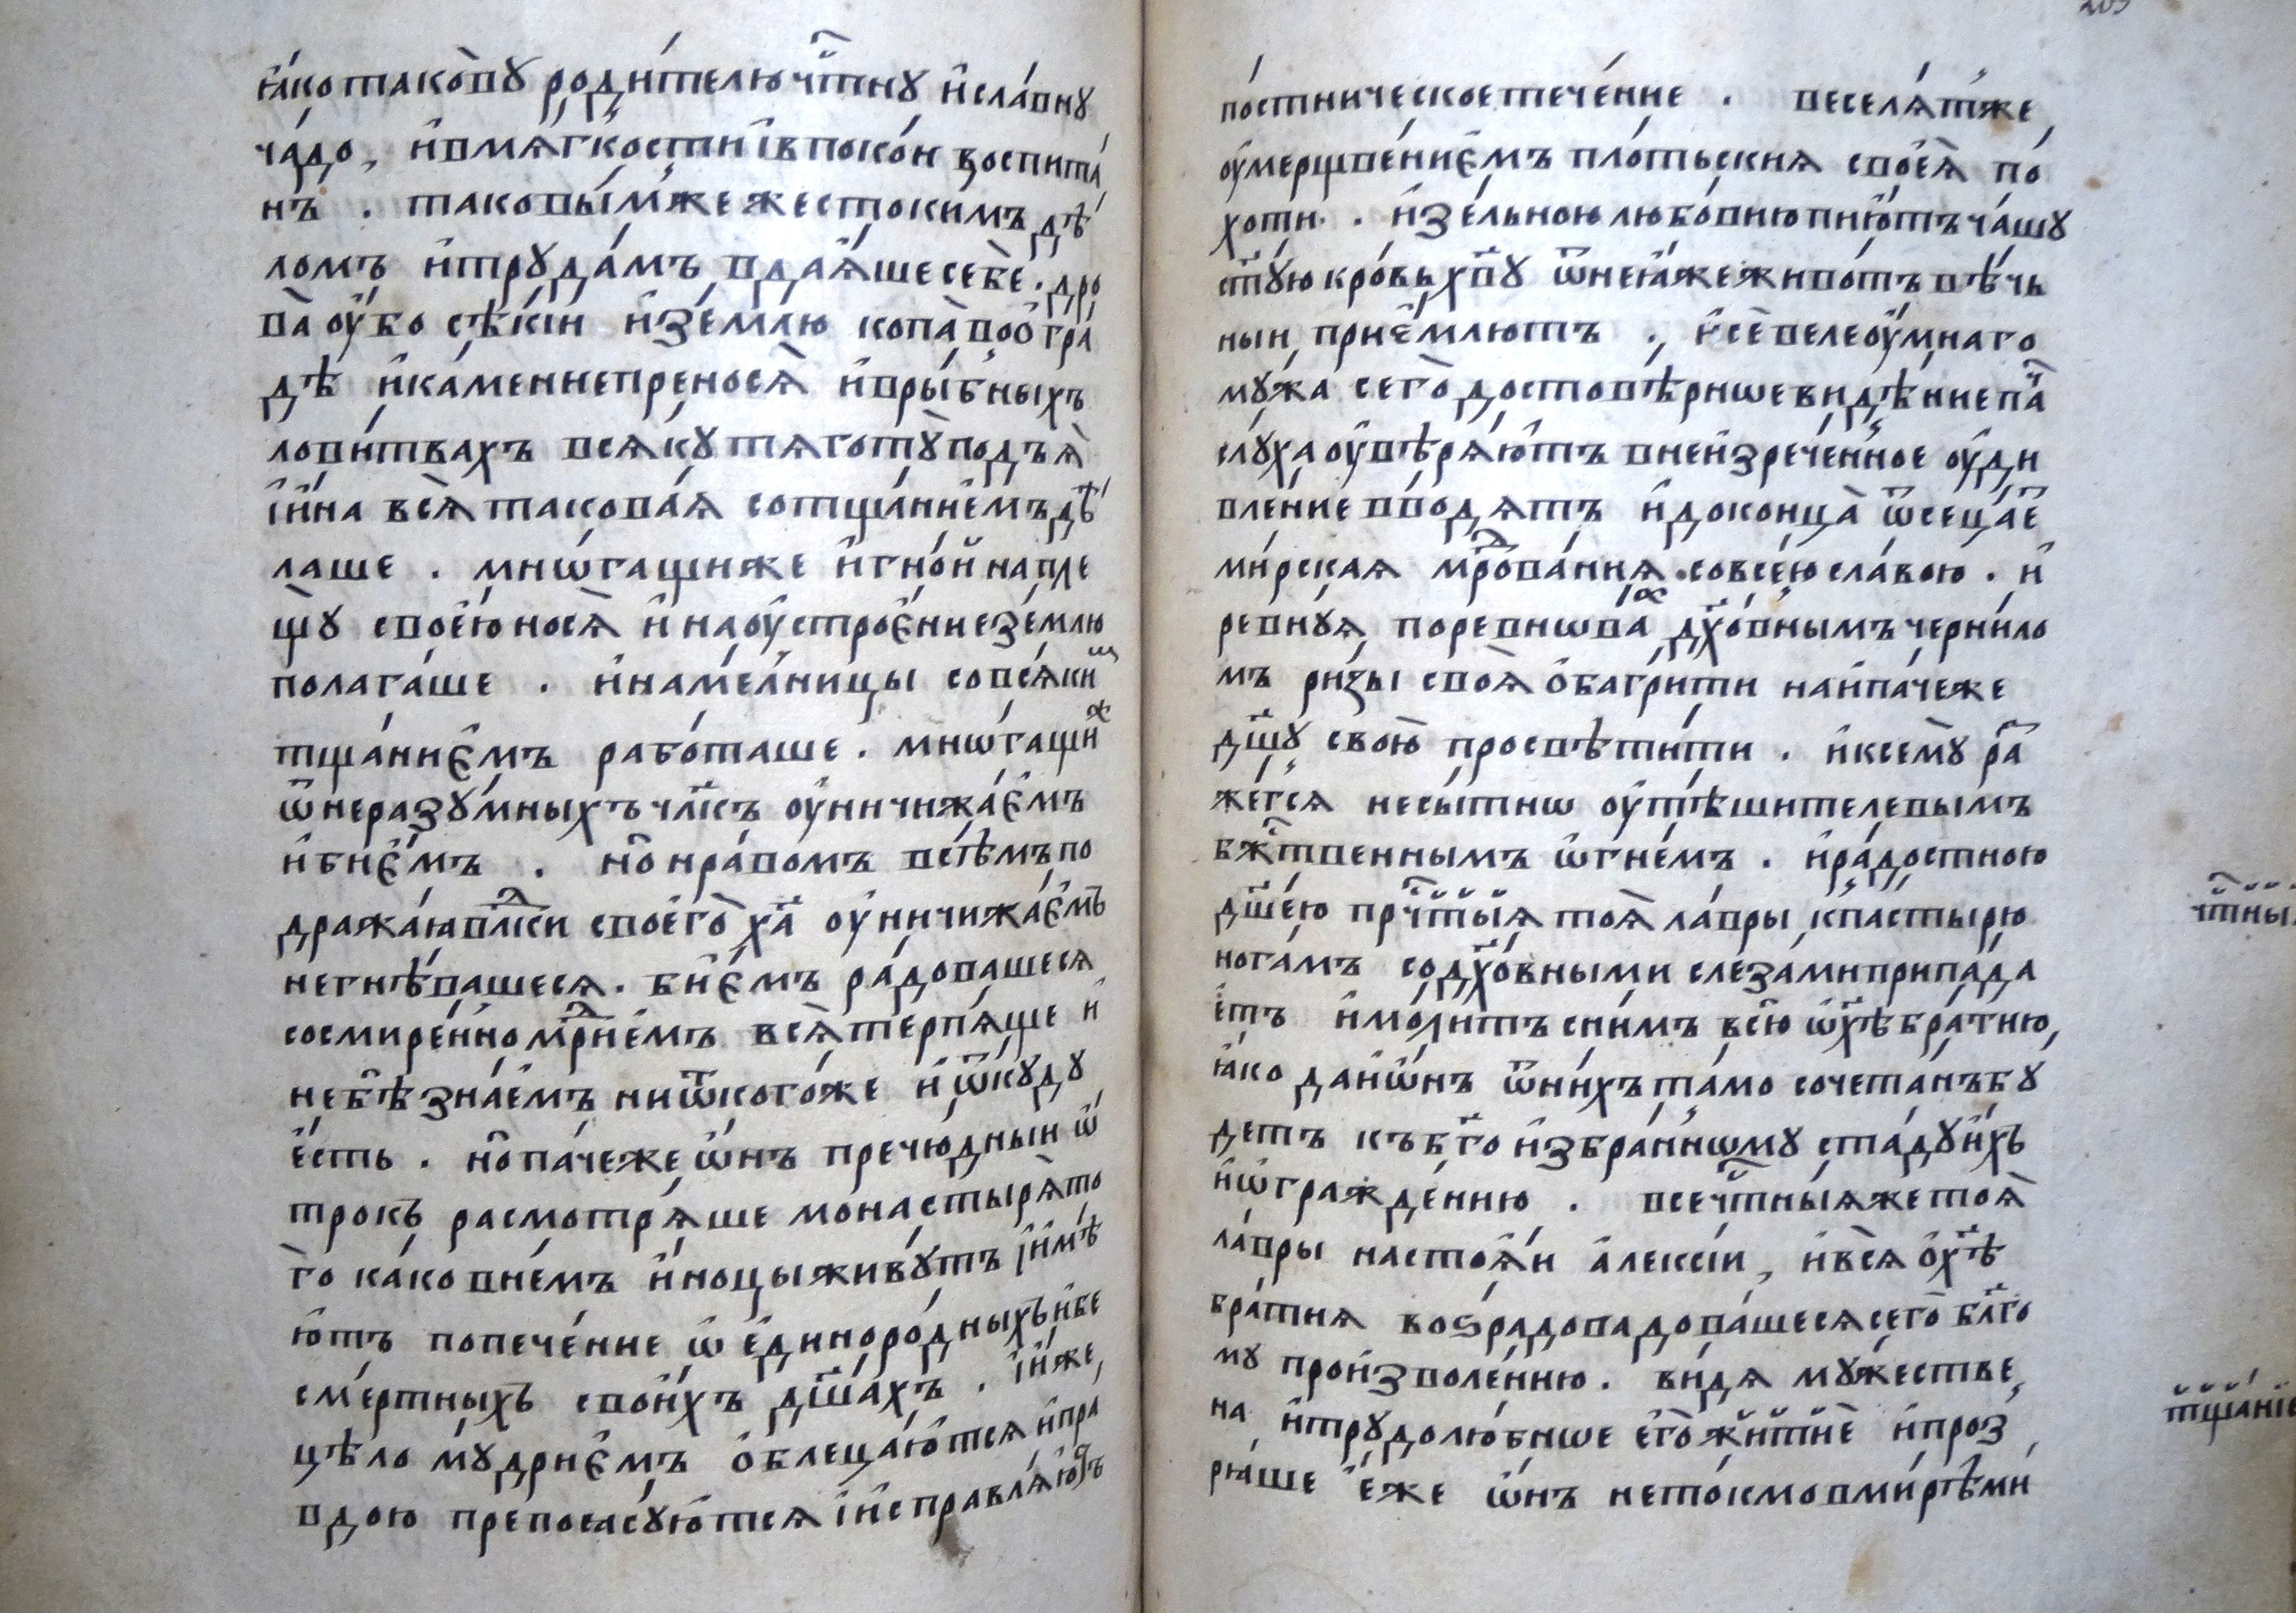 ꙗ҆́ко такова̀ꙋ роди́телю чⷭ҇тнꙋ и҆ сла́внꙋ
ча́до, и҆ в мѧ́гкости і҆ в поко́и воспита́
нъ . таковы́мже жесто́кимъ дѣ́
ломъ и҆ трꙋда́мъ вдаѧ́ше себѐ . дро
ва̀ оу҆́бо сѣкі́й и҆ зе́млю копа̀ в о҆гра́
дѣ и҆ ка́мение преносѧ̀ и҆ в ры́бныхъ
лови́твахъ всѧ́кꙋ тѧготꙋ̀ подъѧ̀
і҆ и҆на всѧ̀ такова́ѧ со тща́нїемъ дѣ́
лаше . мнѡ́гащиже и҆ гно́й на пле
щꙋ̀ свое́ю носѧ̀ и҆ на оу҆строе́ние зе́млю
полага́ше . и҆ на ме́лницы со всѧ́киⷨ
тща́ниемъ рабо́таше . мнѡ́гащиⷤ
ѿ неразꙋ́мныхъ чл҃къ оу҆ничижа́емъ
и҆ бие́мъ . но̑ нра́вомъ всѣ́мъ по
дража́ѧ влⷣки своего̀ хⷭ҇а̀ оу҆ничижа́емъ
не гнѣ́вашесѧ . бие́мъ ра́довашесѧ
со смире́нномꙋ́дриемъ всѧ̀ терпѧ́ше и҆
не бѣ̀ зна́емъ ни ѿ кого́же и҆ ѿкꙋ́дꙋ
е҆́сть . но̑ па́чеже ѻ҆́нъ пречю́дный ѻ҆́
трокъ расмотрѧ́ше монастырѧ̀ то
го̀ ка́ко в не́мъ и҆́ноцы живꙋ́тъ і҆ и҆мѣ́
ютъ попече́ние ѡ҆ е҆диноро́дныхъ и҆ бе
сме́ртныхъ свои́хъ дш҃а́хъ . і҆ и҆́же
цѣломꙋ́дриемъ ѻ҆блеца́ютсѧ и҆ пра́
вдою препоѧсꙋ́ютсѧ і҆ и҆справлѧ́ютъ
по́стническое тече́ние . веселѧ́тже
оу҆мерщве́ниемъ пло́тьскиѧ своеѧ̀ по́
хоти . и҆ зе́льною любо́вию пию́тъ ча́шꙋ
ст҃ꙋ́ю кро́вь хв҃ꙋ ѿ неѧ́же живо́тъ вѣ́чь
ный прие́млютъ . и҆ сѐ велеꙋ́мнаго
мꙋ́жа сего̀ достовѣ́рише ви́дѣние паⷱ
слꙋ́ха оу҆вѣрѧ́ютъ в неизрече́нное оу҆ди
вле́ние вво́дѧтъ и҆ до конца̀ ѿсеца́е
ми́рская мꙋⷣрова́ниѧ со все́ю сла́вою . и҆
ревнꙋ́ѧ поревнѡва̀ⷤ дх҃о́внымъ черни́ло
мъ ри́зы своѧ̀ ѻ҆багри́ти наипа́чеже
дш҃ꙋ свою̀ просвѣти́ти . и҆ к семꙋ̀ ра
жже́гсѧ несы́тнѡ оу҆тѣ́шителевымъ
бж҃твеннымъ ѻ҆гне́мъ . и҆ ра́достною
дш҃е́ю прчⷭ҇ты́ѧ тоѧ̀ ла́вры к па́стырю
нога́мъ со дх҃о́вными слеза́ми припа́да
етъ и҆ мо́литъ с ни́мъ всю̀ ѡ҆ Хⷭ҇ѣ̀ бра́тию,
ꙗ҆́ко да и҆ ѻ҆́нъ ѿ ни́хъ та́мо сочета́нъ бꙋ́
детъ къ бг҃оизбра́нномꙋ ста́дꙋ и҆́хъ
и҆ ѡ҆гражде́нию . всечⷭ҇тныѧже тоѧ̀
ла́вры настоѧ́й а҆ле́ксїй, и҆ всѧ ѻ҆ хⷭ҇ѣ̀
бра́тиѧ воѕрадова́довашесѧ сего̀ бл҃го
мꙋ произволе́нию . ви́дѧ мꙋ́жестве
на и҆ трꙋдолю́бнше е҆го̀ житиѐ и҆ прозⷭ
рѧ́ше е҆́же ѻ҆́нъ не то́кмо в ми́рѣ ми
чⷭ҇тны
тща́нїе